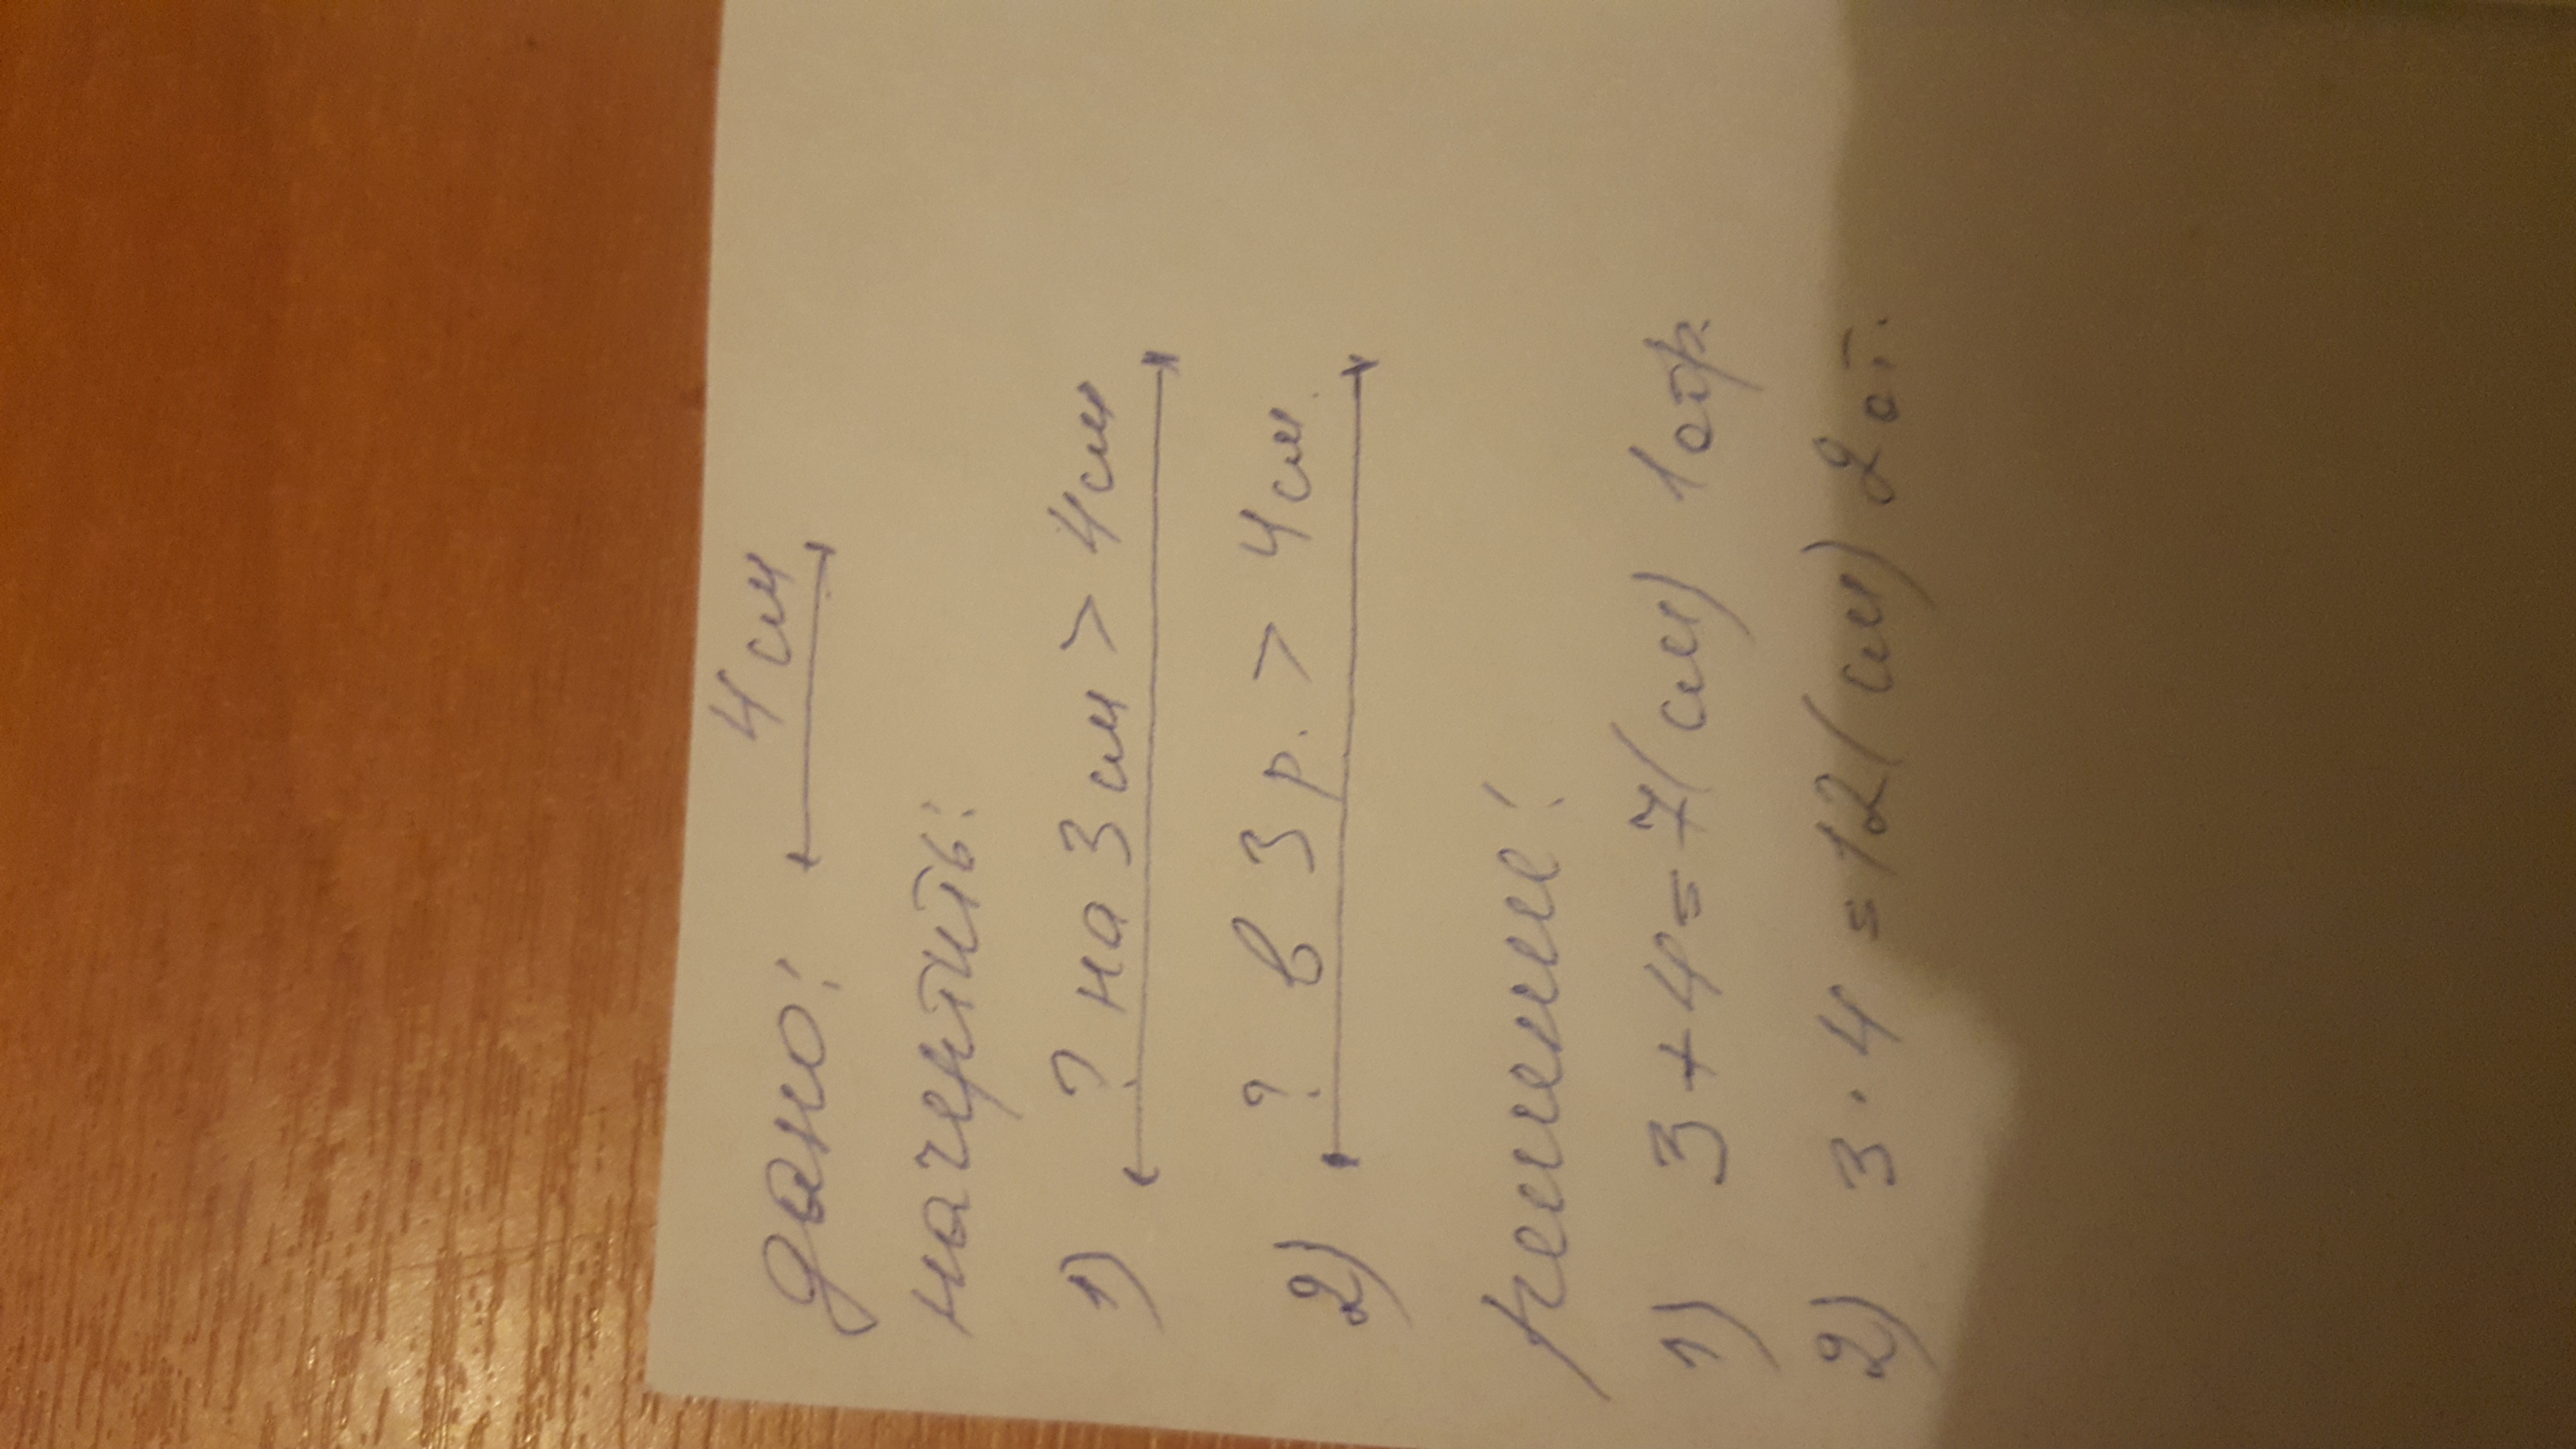 дано: 4 см
начертить:
1) ? на 3 см > 4 см
2) ? в 3 р. > 4 см.
решение:
1) 3 + 4 = 7 (см) 1 отр.
2) 3 · 4 = 12 (см) 2 от.